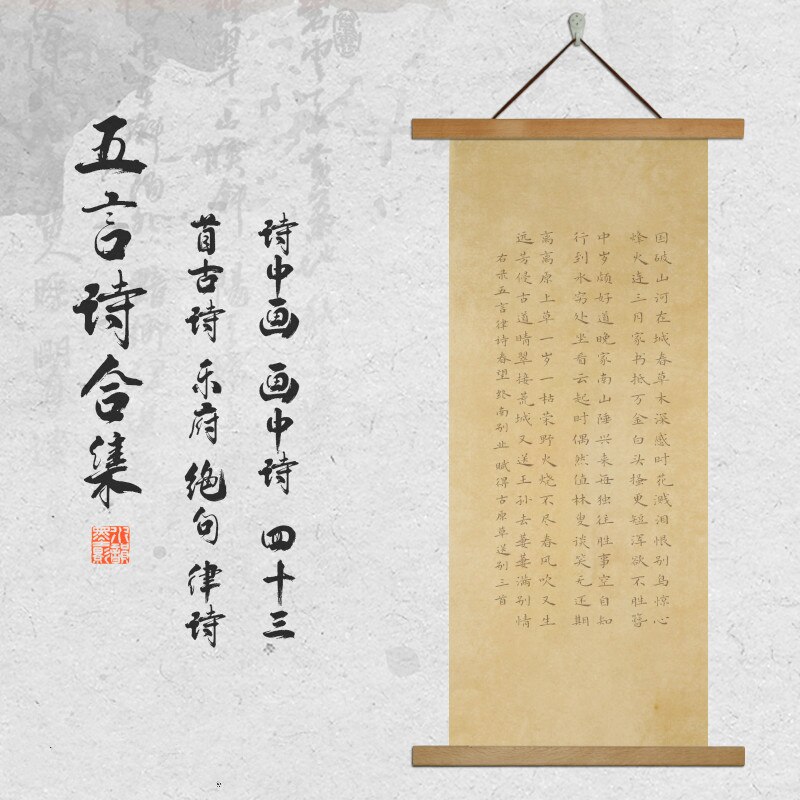 五言诗合集
诗中画 画中诗 四十三
首古诗 乐府 绝句 律诗
国破山河在城春草木深感时花溅泪恨别鸟惊心
烽火连三月家书抵万金白头搔更短浑欲不胜簪
中岁颇好道晚家南山陲兴来每独往胜事空自知
行到水穷处坐看云起时偶然值林叟谈笑无还期
离离原上草一岁一枯荣野火烧不尽春风吹又生
远芳侵古道晴翠接荒城又送王孙去萋萋满别情
右录五言律诗春望终南别业赋得古原草送别三首